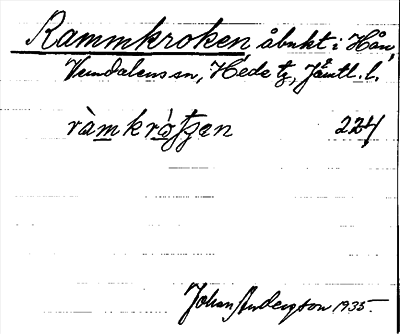 Rammkroken åbukt i Hån,
Vemdalens sn, Hede tg, Jämtl. l.
ràmkrò̀ʈʂen 224
Johan Anderson 1935.